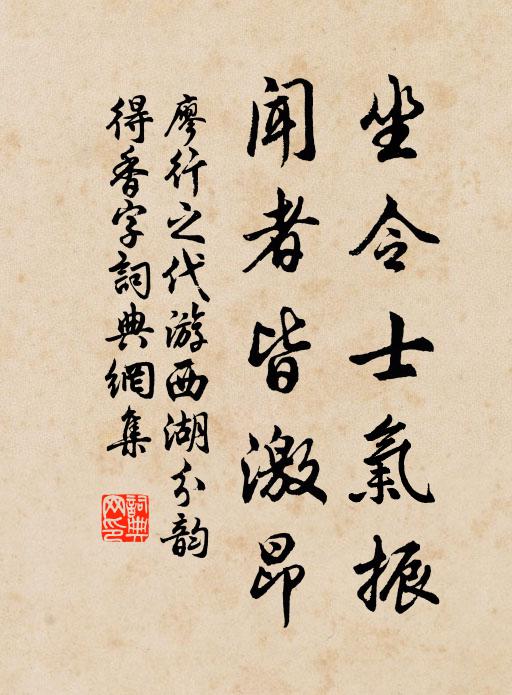 坐令士氣振
聞者皆激昂
廖行之代游西湖分韵
得香字詞典網集
詞典
网印